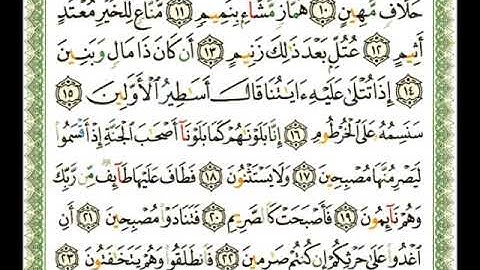 حَلَّافٍ مَّهِينٍ ١٠ هَمَّازٍ مَّشَّآءِۭ بِنَمِيمٍ ١١ مَّنَّاعٍ لِّلْخَيْرِ مُعْتَدٍ
أَثِيمٍ ١٢ عُتُلٍّۭ بَعْدَ ذَٰلِكَ زَنِيمٍ ١٣ أَن كَانَ ذَا مَالٍ وَبَنِينَ
١٤ إِذَا تُتْلَىٰ عَلَيْهِ ءَايَٰتُنَا قَالَ أَسَٰطِيرُ ٱلْأَوَّلِينَ ١٥
سَنَسِمُهُۥ عَلَى ٱلْخُرْطُومِ ١٦ إِنَّا بَلَوْنَٰهُمْ كَمَا بَلَوْنَآ أَصْحَٰبَ ٱلْجَنَّةِ إِذْ أَقْسَمُوا۟
لَيَصْرِمُنَّهَا مُصْبِحِينَ ١٧ وَلَا يَسْتَثْنُونَ ١٨ فَطَافَ عَلَيْهَا طَآئِفٌ مِّن رَّبِّكَ
وَهُمْ نَآئِمُونَ ١٩ فَأَصْبَحَتْ كَٱلصَّرِيمِ ٢٠ فَتَنَادَوْا۟ مُصْبِحِينَ ٢١ أَنِ
ٱغْدُوا۟ عَلَىٰ حَرْثِكُمْ إِن كُنتُمْ صَٰرِمِينَ ٢٢ فَٱنطَلَقُوا۟ وَهُمْ يَتَخَٰفَتُونَ ٢٣